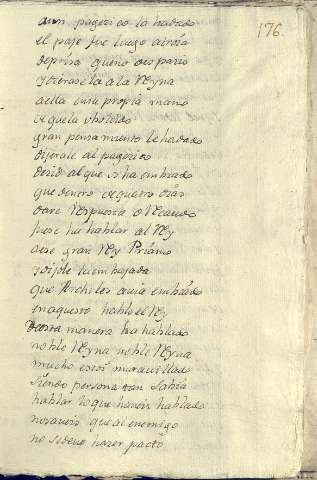 176.
aun pagezico la ha dado
el paje fue luego a troia
de prisa que no de spazio
y dierase la a la Reyna
a ella en su propia mano
de que la vbo leido
gran pensamiento le ha dado
dixerale al pagezico
dezid al que os ha embiado
que dentro de quatro dias
dare Respuesta o Recaudo
fuese ha hablar al Rey
a ese gran Rey Priamo
y dijole la embajada
que Archiles auia embiado
en aquesto hablo el Rey
desta manera ha hablado
noble Reyna noble Reyna
mucho estoi marauillado
siendo persona tan sabia
hablar lo que haueis hablado
no saueis que al enemigo
no se deue hazer pacto